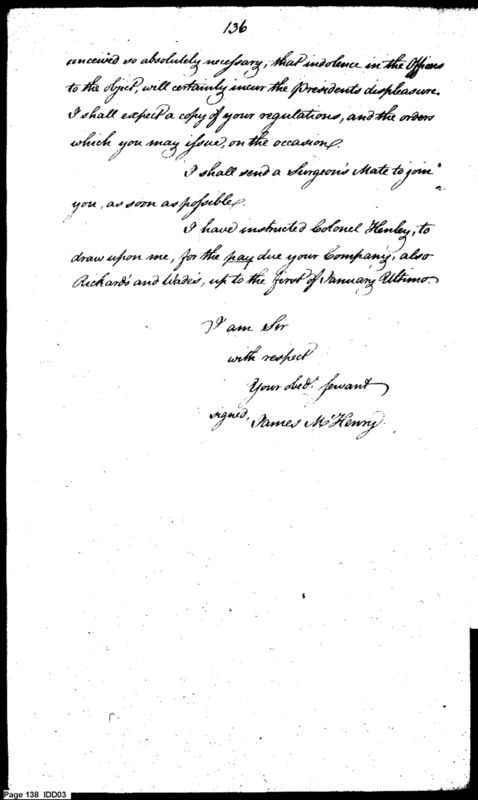 136
conceived so absolutely necessary, that indolence in the Officers
to the object, will certainly incur the Presidents displeasure.
I shall expect a copy of your regulations, and the orders
which you may issue, on the occasion.
I shall send a Surgeon's Mate to join
you, as soon as possible.
I have instructed Colonel Henley, to
draw upon me, for the pay due your Company, also
Rickard's and Wade's, up to the first of January Ultimo.
I am Sir
with respect
Your obedt. servant
signed, James McHenry.
Page 138 IDD03